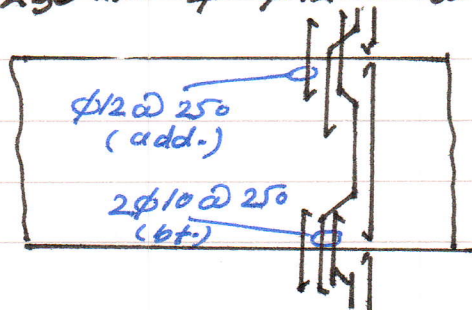 ϕ12 @ 250
(add.)
2ϕ10 @ 250
(bt.)